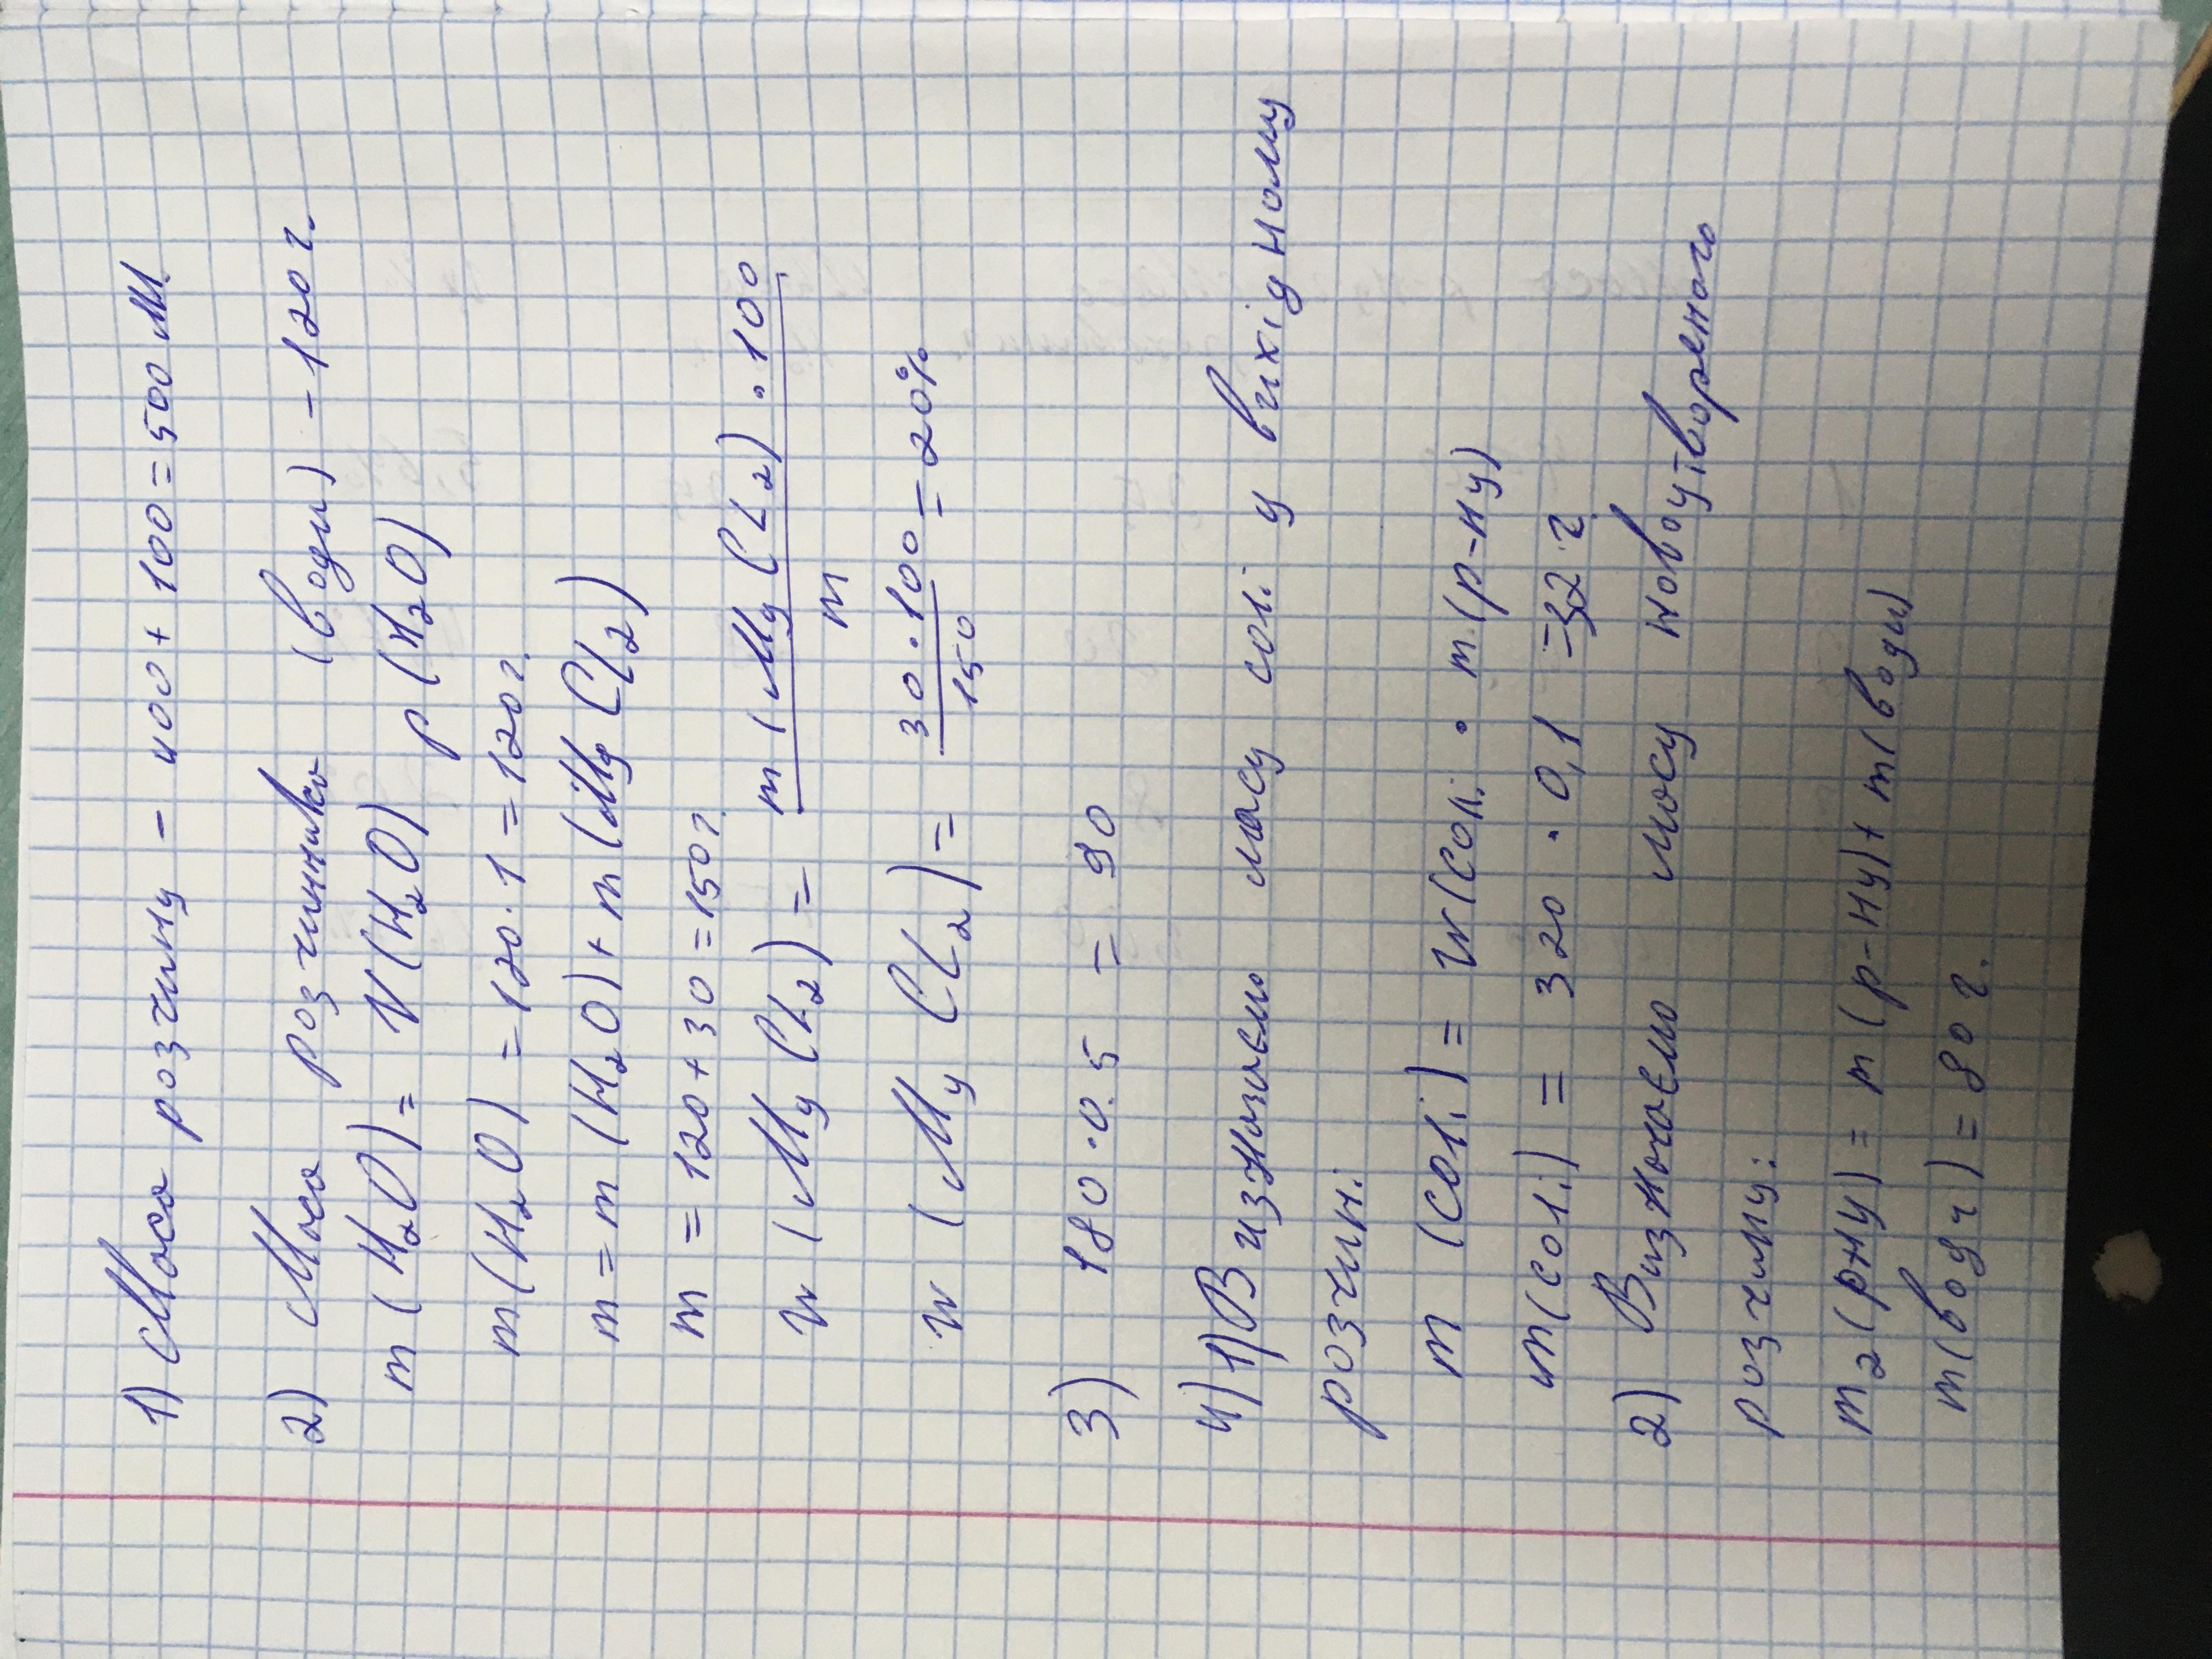 1) Маса розчину - 400 + 100 = 500 мл.
2) Маса розчинника (води) - 120 г.
m (H₂O) = V(H₂O) p (H₂O)
m (H₂O) = 120 · 1 = 120г.
m = m (H₂O) + m (Mg Cl₂)
m = 120 + 30 = 150г.
w (Mg Cl₂) = m (Mg Cl₂) · 100 / m
w (Mg Cl₂) = 30 · 100 / 150 = 20%
3) 180 · 0.5 = 90
4) 1) Визначаємо масу солі у вихідному
розчині
m (солі) = w(солі · m (р-ну)
m(солі) = 320 · 0,1 = 32 г.
2) Визначаємо масу новоутвореного
розчину:
m₂(рну) = m (р-ну) + m (води)
m(води) = 80 г.